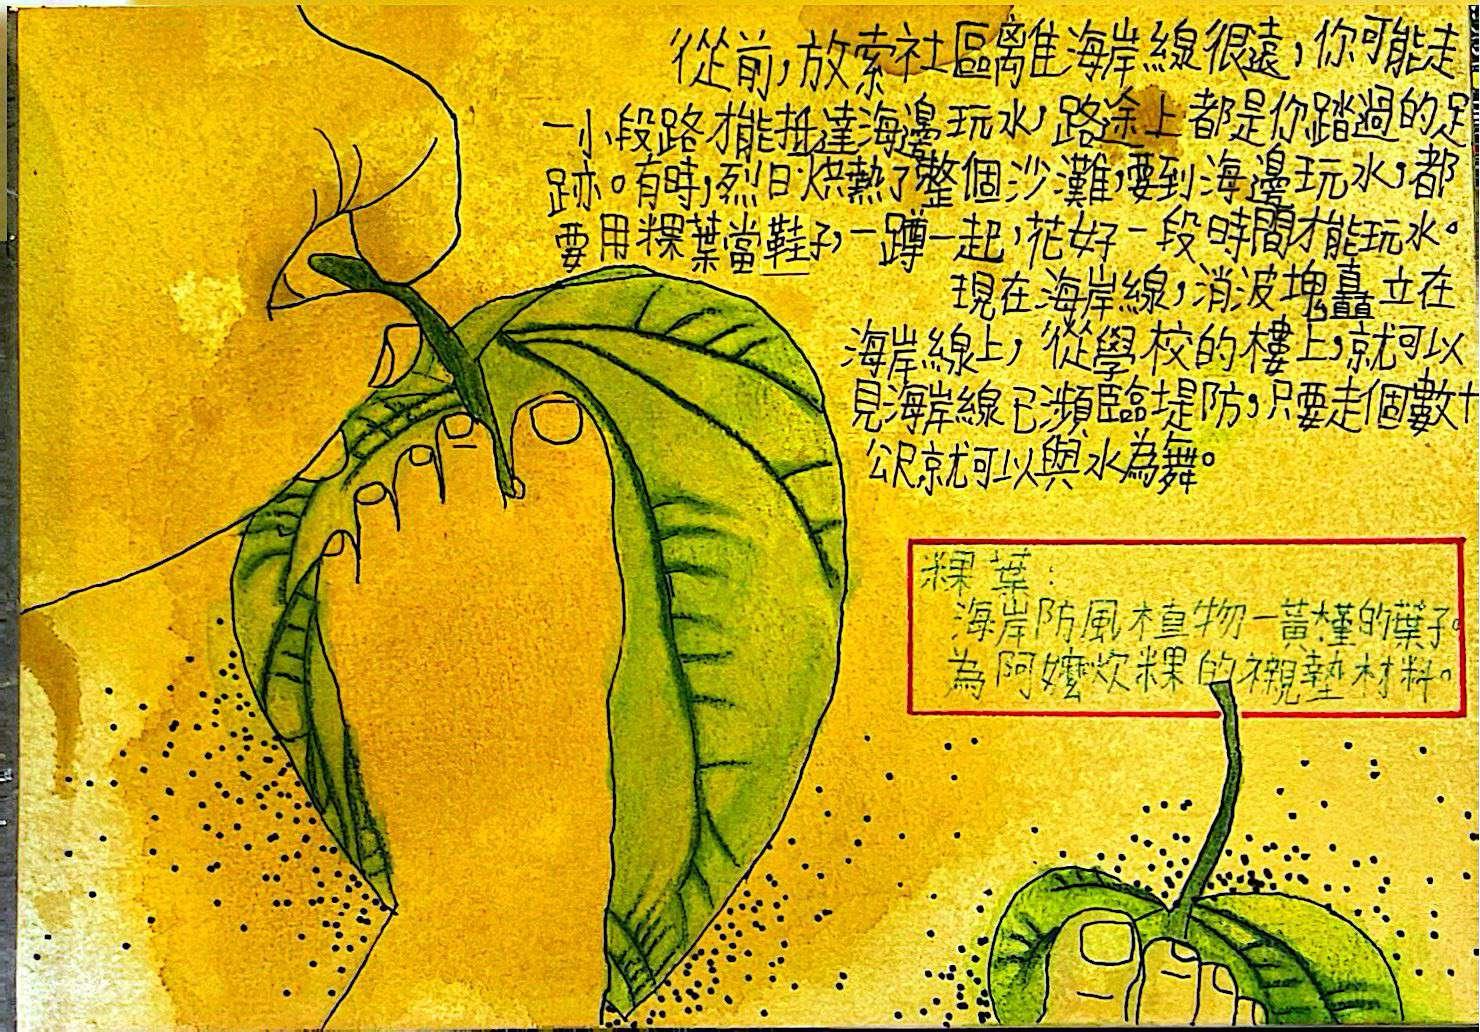 從前，放索社區離海岸線很遠，你可能走
一小段路才能抵達海邊玩水，路途上都是你踏過的足
跡。有時，烈日烘熱了整個沙灘，要到海邊玩水，都
要用粿葉當鞋子，一蹲一起，花好一段時間才能玩水。
現在海岸線，消波塊矗立在
海岸線上，從學校的樓上，就可以
見海岸線已瀕臨堤防，只要走個數十
公尺就可以與水為舞。
粿葉：
海岸防風植物一黃槿的葉子。
為阿嬤炊粿的襯墊材料。